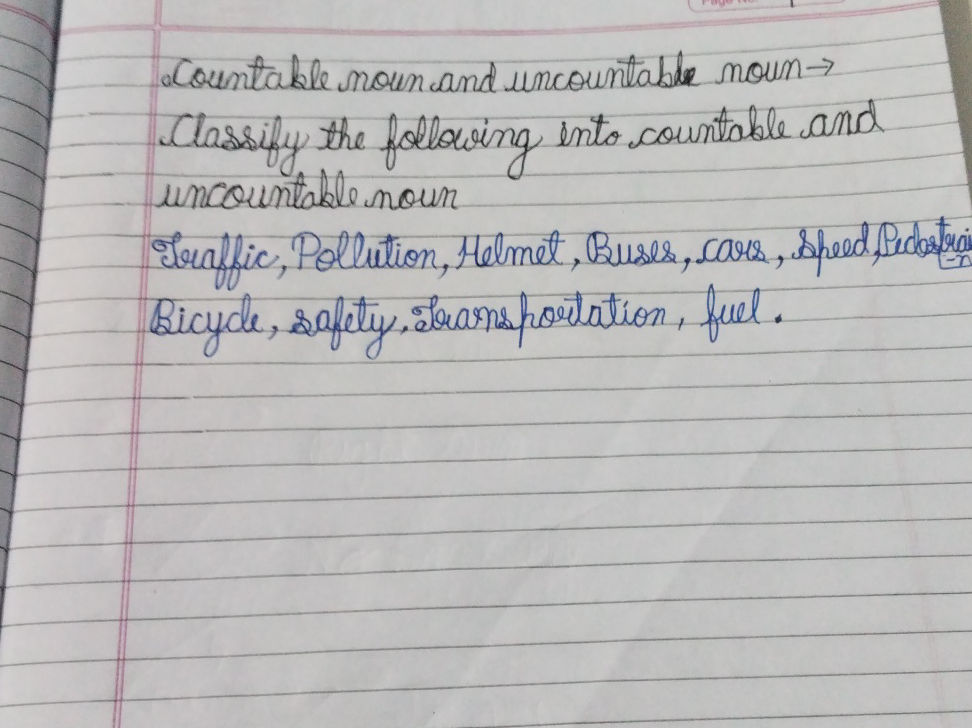 Page No.
Countable noun and uncountable noun→
Classify the following into countable and
uncountable noun
Traffic, Pollution, Helmet, Buses, cars, speed, Pedestrain
Bicycle, safety, Transportation, fuel.